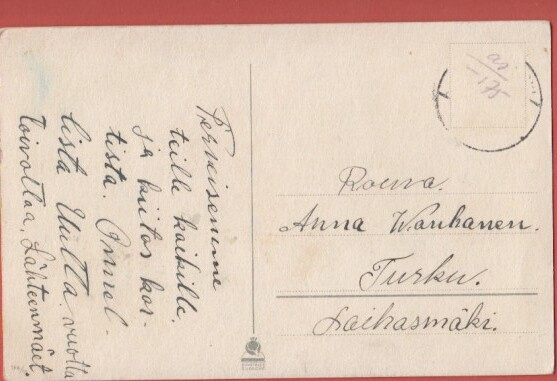 Terveisemme
teille kaikille,
ja kiitos kor-
tista. Onnel-
lista Uutta vuotta
Toivottaa, Lähteenmäet.
Rouva.
Anna Wanhanen.
Turku.
Raikasmäki.